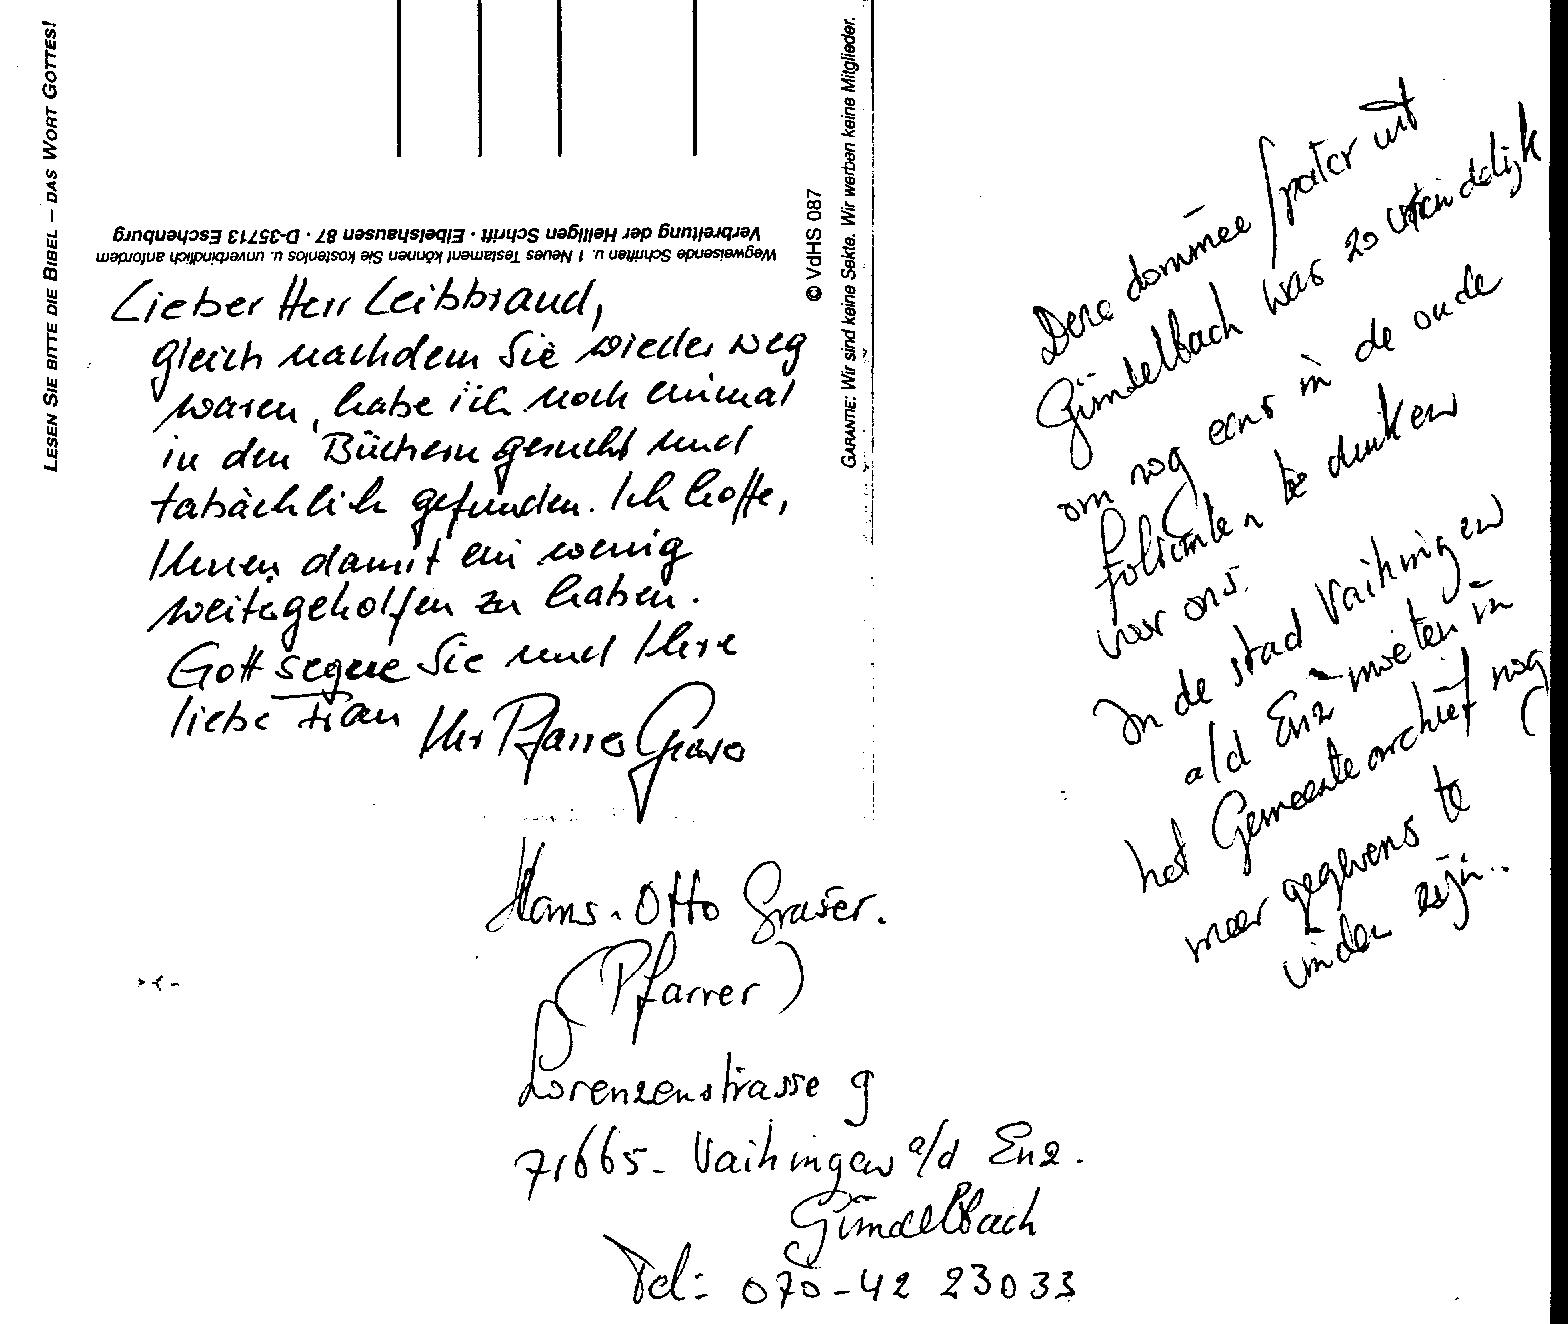 LESEN SIE BITTE DIE BIBEL – DAS WORT GOTTES!
Wegweisende Schriften u. 1 Neues Testament können Sie kostenlos u. unverbindlich anfordern
Verbreitung der Heiligen Schrift · Eibelshausen 87 · D-35713 Eschenburg
© VdHS 087
GARANTIE: Wir sind keine Sekte. Wir werben keine Mitglieder.
Lieber Herr Leibbrand,
gleich nachdem Sie wieder weg
waren, habe ich noch einmal
in den Büchern gesucht und
tatsächlich gefunden. Ich hoffe,
Ihnen damit ein wenig
weitergeholfen zu haben.
Gott segne Sie und Ihre
liebe Frau
Ihr Pfarrer Graser
Hans-Otto Graser.
(Pfarrer)
Lorenzenstrasse 9
71665- Vaihingen a/d Enz.
Gündelbach
Tel: 070-42 23033
Deze dominee /pastor uit
Gündelbach was zo vriendelijk
om nog eens in de oude
folianten te duiken
voor ons.
In de stad Vaihingen
a/d Enz moeten in
het Gemeente archief nog
meer gegevens te
vinden zijn..